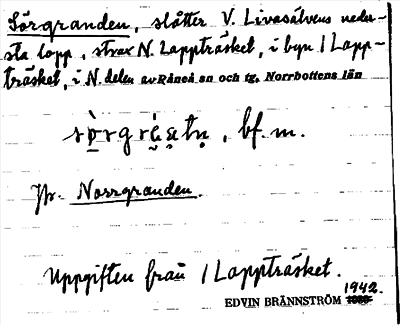 Sörgranden, slåtter V. Livasälvens neder-
sta lopp, strax N. Lappträsket, i byn 1 Lapp-
träsket, i N. delen av Råneå sn och tg, Norrbottens län
bf. m.
Jfr. Norrgranden.
Uppgiften från 1 Lappträsket.
1942.
EDVIN BRÄNNSTRÖM